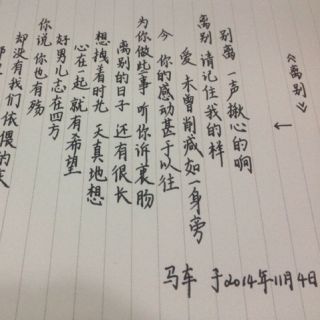 《离别》
←
别离 一声揪心的啊
离别 请记住我的样
爱 未曾削减 如一身旁
今 你的感动甚于以往
为你做些事 听你诉衷肠
离别的日子 还有很长
想拽着时光 天真地想
心在一起 就有希望
好男儿志在四方
你说 你也有殇
却没有我们依偎的
马车 于2014年11月4日